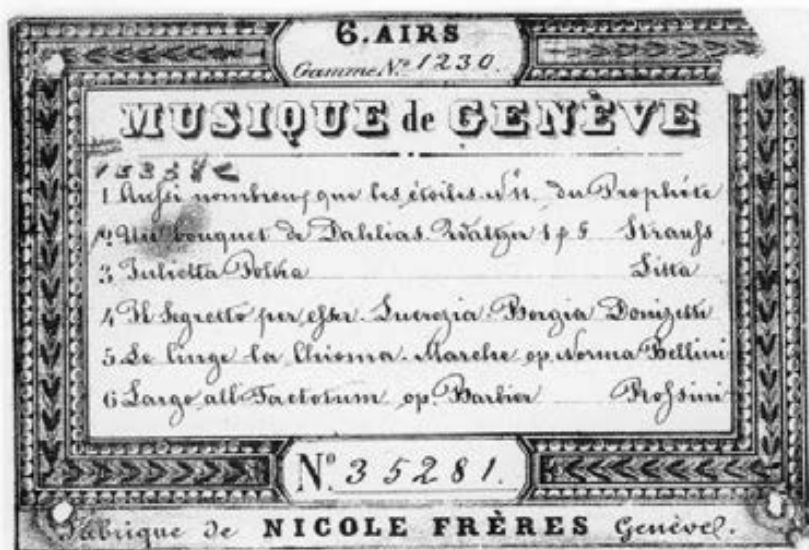 6. AIRS
Gamme No. 1230.
MUSIQUE de GENÈVE
1 Aussi nombreux que les étoiles No 11. du Prophéte
2 Un bouquet de Dahlias. Waltzer 1 & 5 Strauss
3 Julietta Polka Litta
4 Il Segretto per esser. Lucrezia. Borgia Donizetti
5 Se linge la Chioma. Marche op. Norma Bellini
6 Largo all Factotum op. Barbier Rossini
No. 35281.
Fabrique de NICOLE FRÈRES Genève.